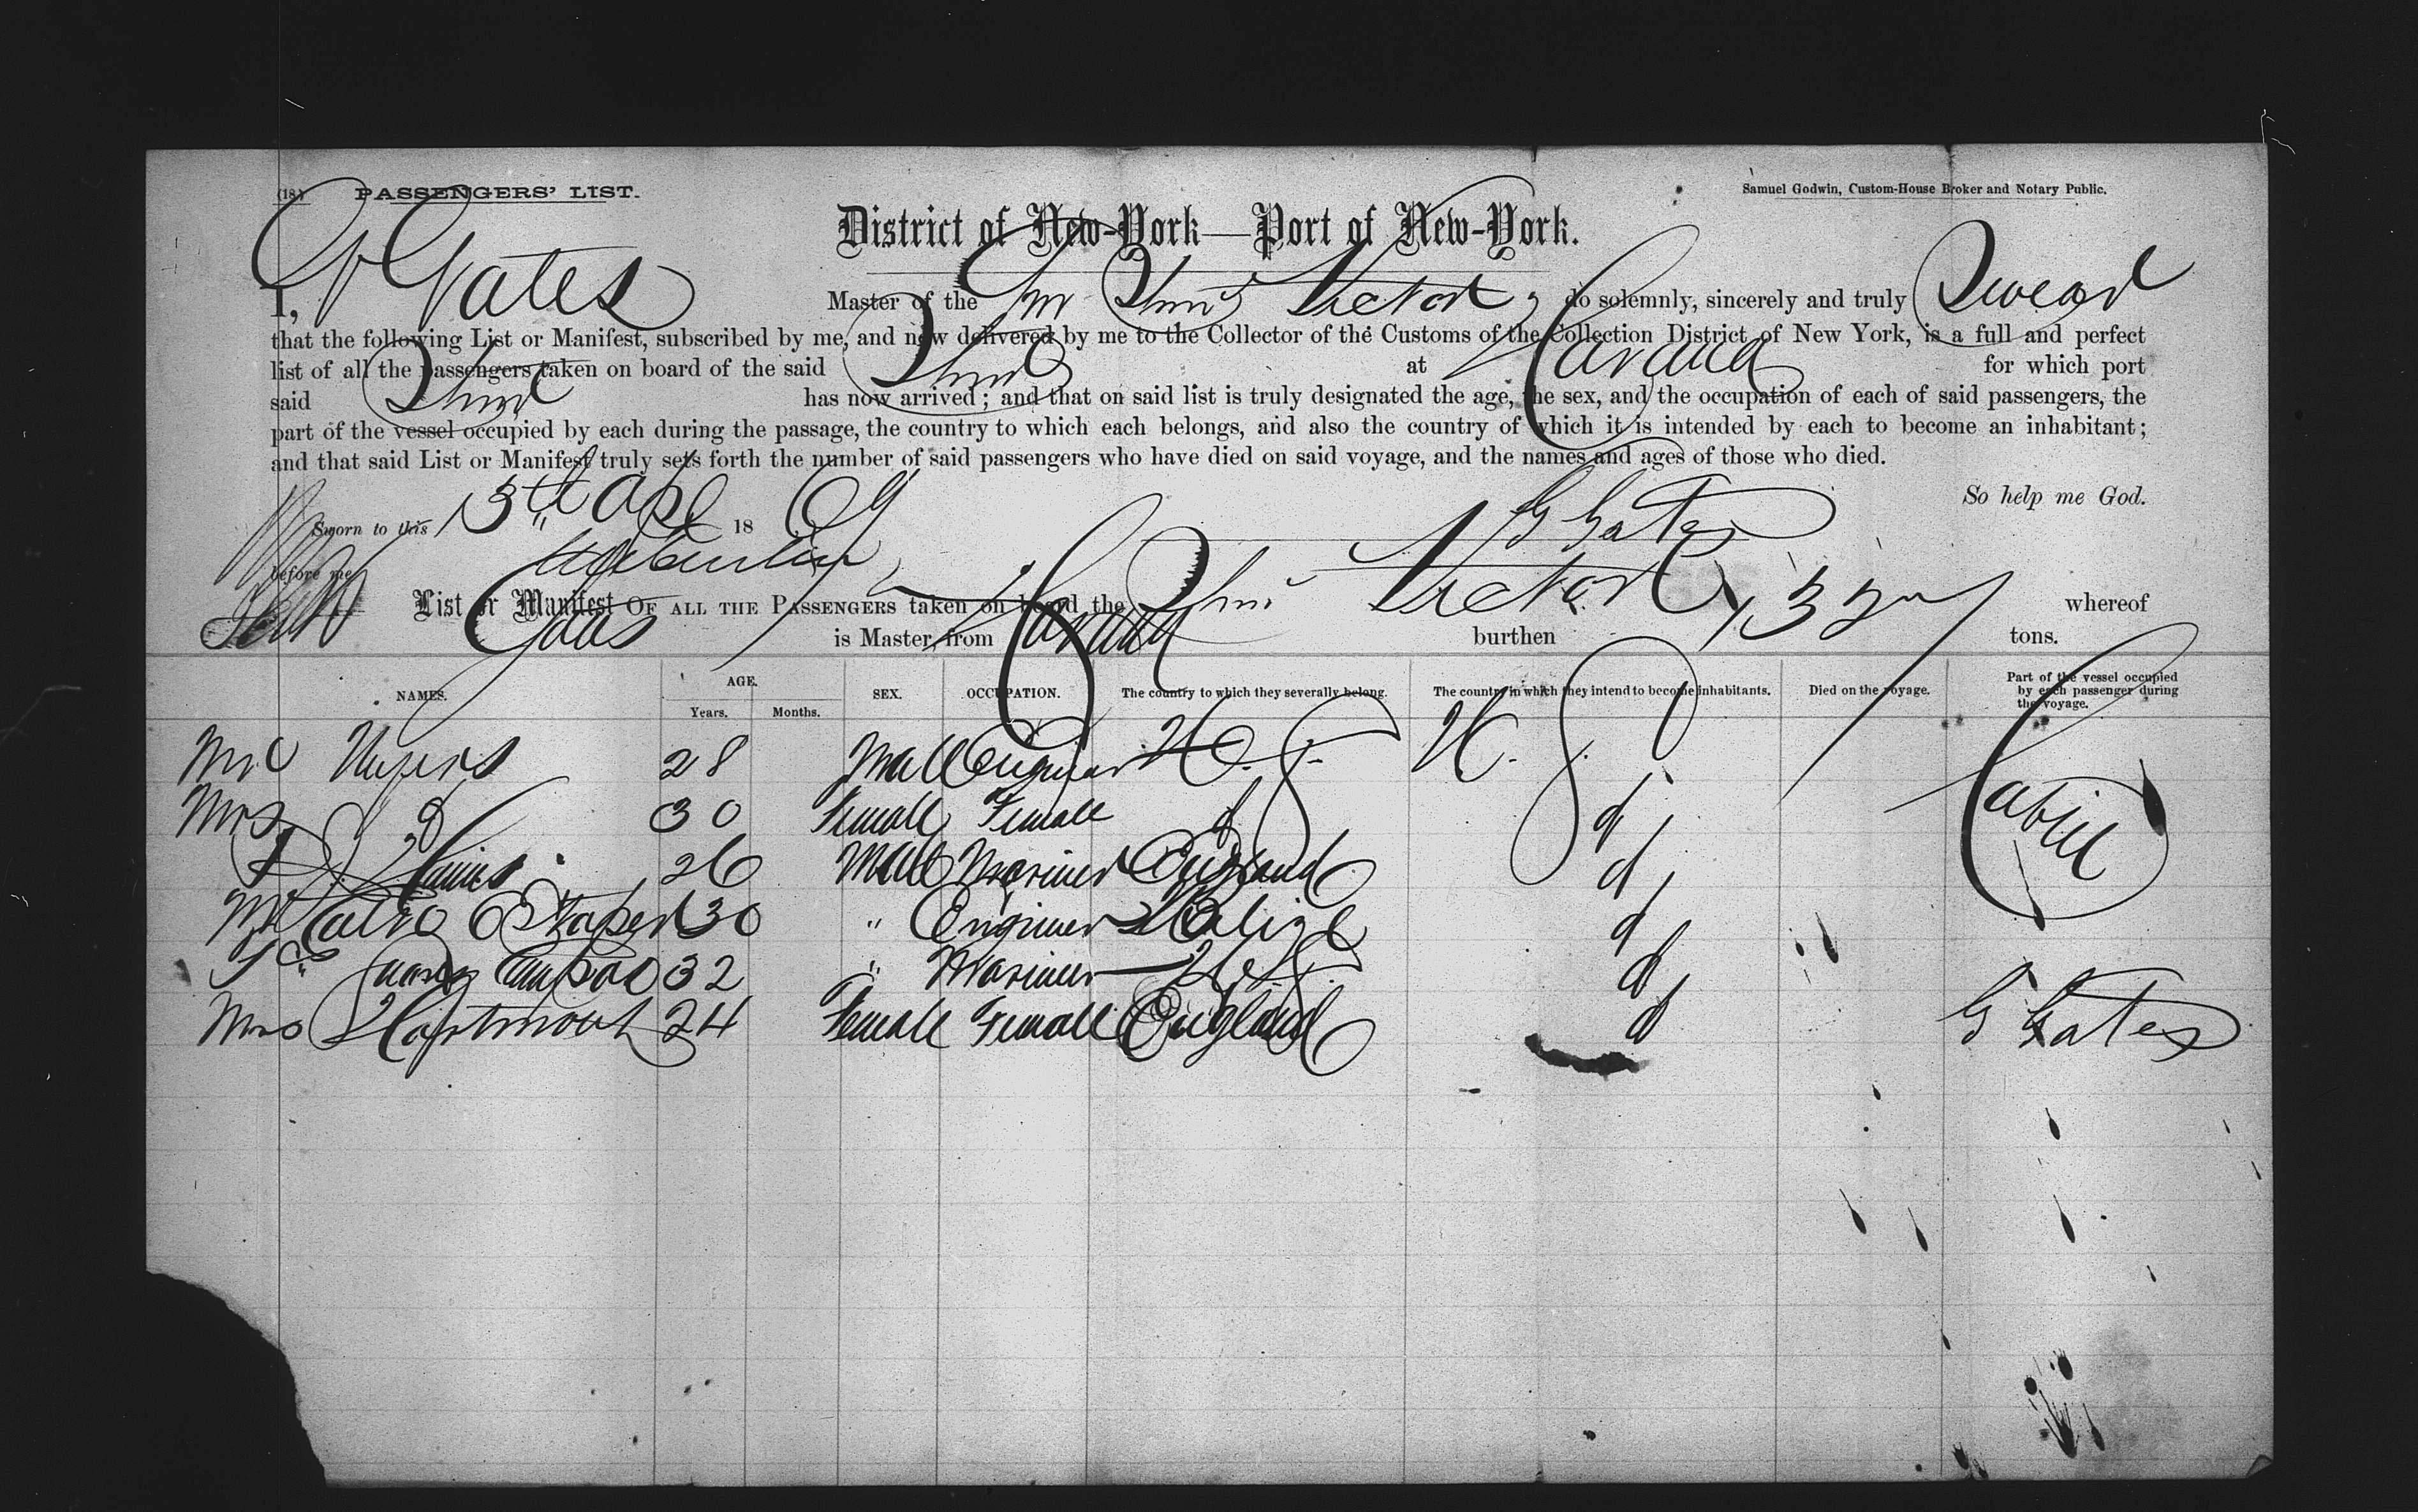 (18) PASSENGERS' LIST.
Samuel Godwin, Custom-House Broker and Notary Public.
District of New-York—Port of New-York.
I, G Gates Master of the Victor, do solemnly, sincerely and truly Swear
that the following List or Manifest, subscribed by me, and now delivered by me to the Collector of the Customs of the Collection District of New York, is a full and perfect
list of all the passengers taken on board of the said at Havana for which port
said has now arrived; and that on said list is truly designated the age, the sex, and the occupation of each of said passengers, the
part of the vessel occupied by each during the passage, the country to which each belongs, and also the country of which it is intended by each to become an inhabitant;
and that said List or Manifest truly sets forth the number of said passengers who have died on said voyage, and the names and ages of those who died.
So help me God.
Sworn to this 13th Apl 1869 G Gates
before me
List or Manifest OF ALL THE PASSENGERS taken on board the Victor whereof
Gates is Master, from Havana burthen tons.
NAMES. AGE. Years. Months. SEX. OCCUPATION. The country to which they severally belong. The country in which they intend to become inhabitants. Died on the voyage. Part of the vessel occupied by each passenger during the voyage.
Mr 28 Male Engineer U. S. U. S. Cabin
Mrs 30 Female Female d d
26 Male Mariner England d
30 " Engineer Belize d
32 " Mariner U. S. d
Mrs 24 Female Female England d
G Gates